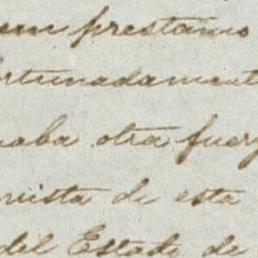 em prestamo
ortunadament
naba otra fuerz
rvista de esta
del Estado de